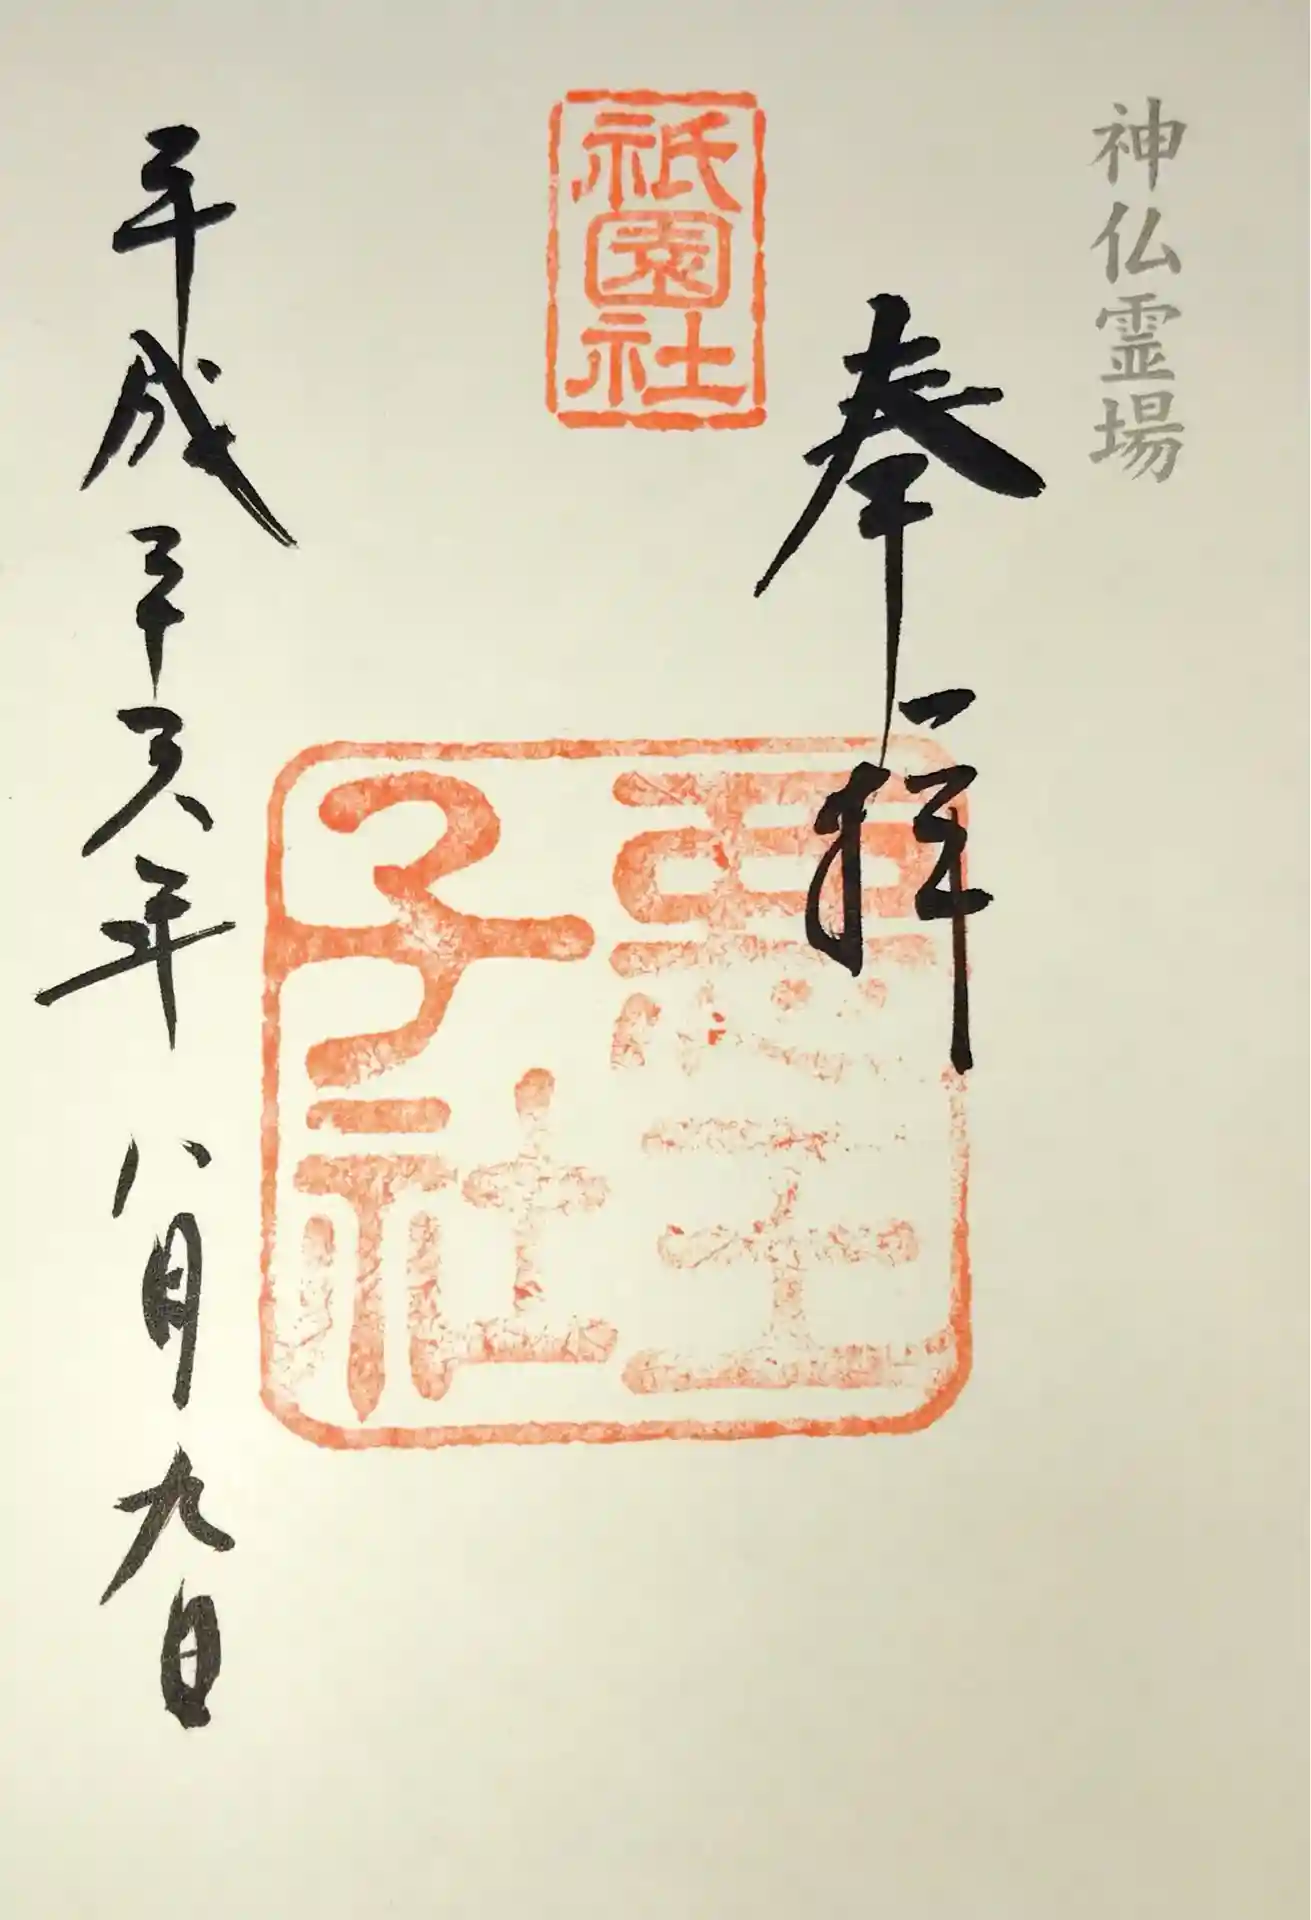 神仏霊場
奉拝
祇園社
悪王子社
平成二十六年八月九日